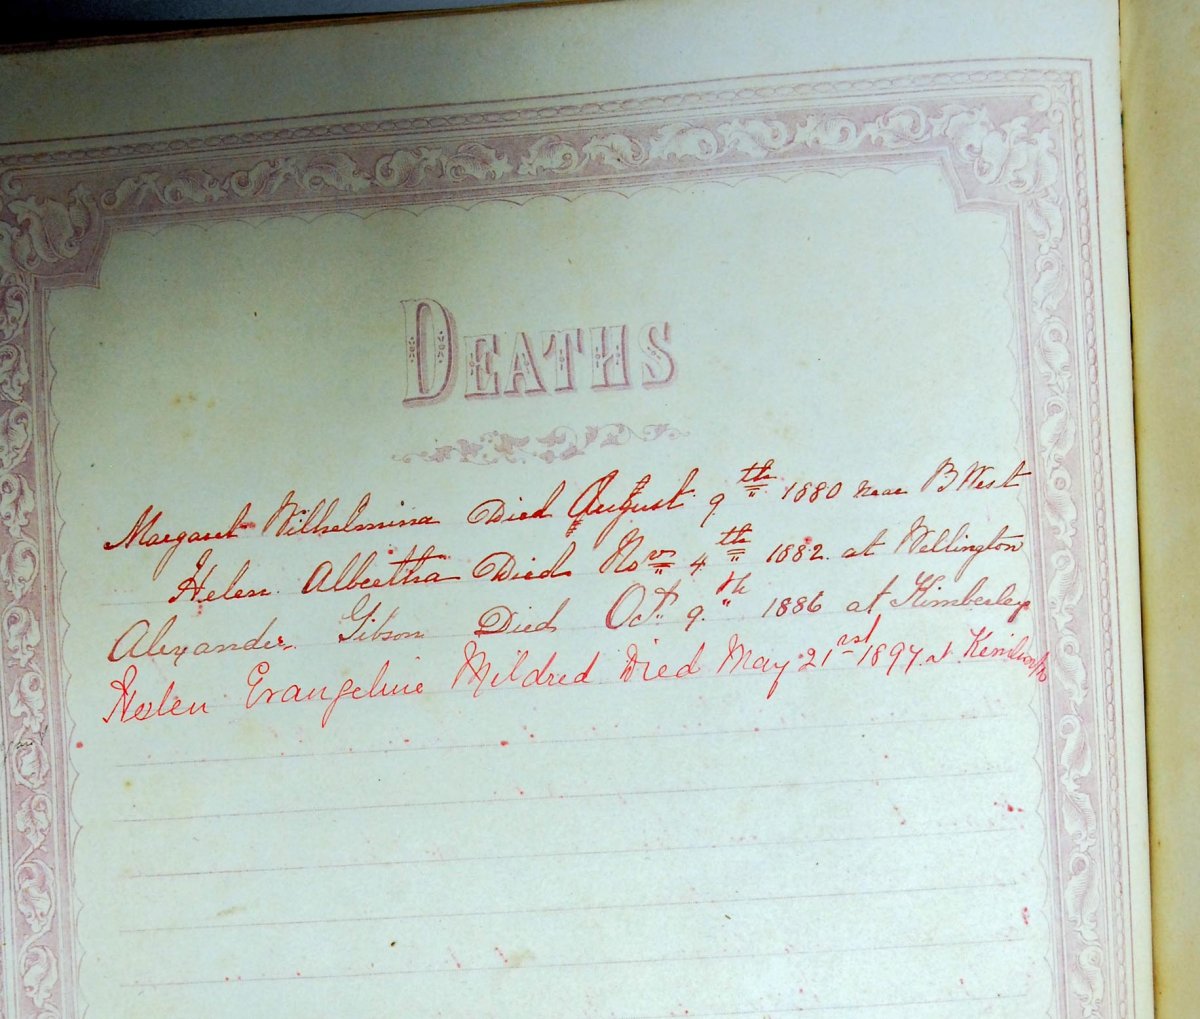 DEATHS
Margaret Wilhelmina Died August 9th 1880 near B West
Helen Albertha Died Nov 4th 1882 at Wellington
Alexander Gibson Died Oct 9th 1886 at Kimberley
Helen Evangeline Mildred Died May 21rst 1897 at Kenilworth